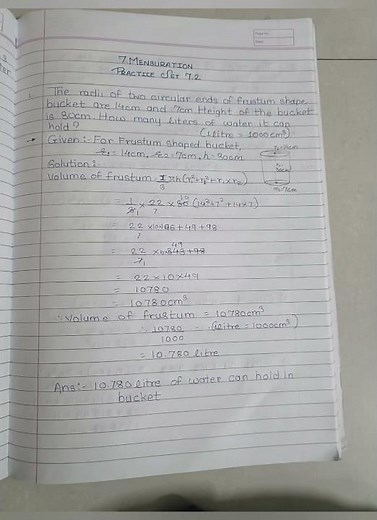 7. MENSURATION
PRACTICE SET 7.2
The radii of two circular ends of frustum shape
bucket are 14cm and 7cm Height of the bucket
is 30cm. How many liters of water it can
hold? (1 litre = 1000cm³)
→ Given:- For Frustum shaped bucket,
r₁ = 14cm, r₂ = 7cm, h = 30cm
Solution:
volume of frustum = 1/3 πh (r₁² + r₂² + r₁ × r₂)
= 1/3 × 22/7 × 30 (14² + 7² + 14×7)
= 22/7 × 10 × 196 + 49 + 98
= 22/7 × 10 × 343 49
= 22 × 10 × 49
= 10780
= 10780cm³
∴ Volume of frustum = 10780cm³
= 10780/1000 (litre = 1000cm³)
= 10.780 litre
Ans:- 10.780 litre of water can hold in
bucket